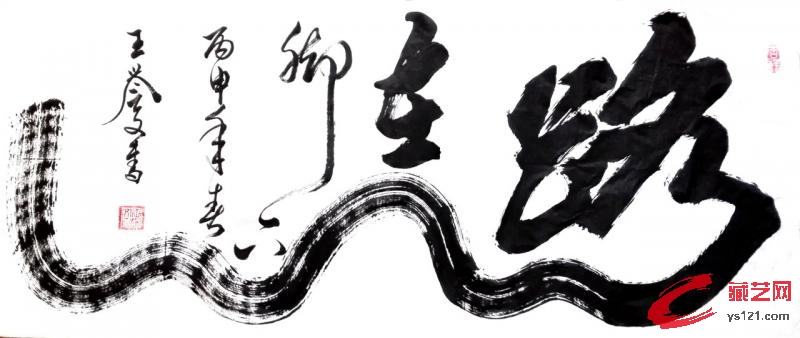 路在脚下
丙申年春
王書
藏艺网
ys121.com